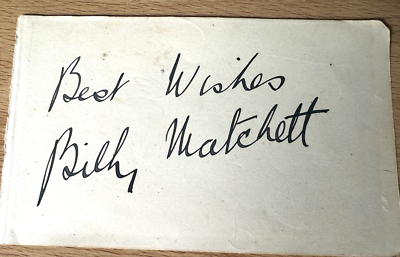 Best Wishes
Billy Matchett